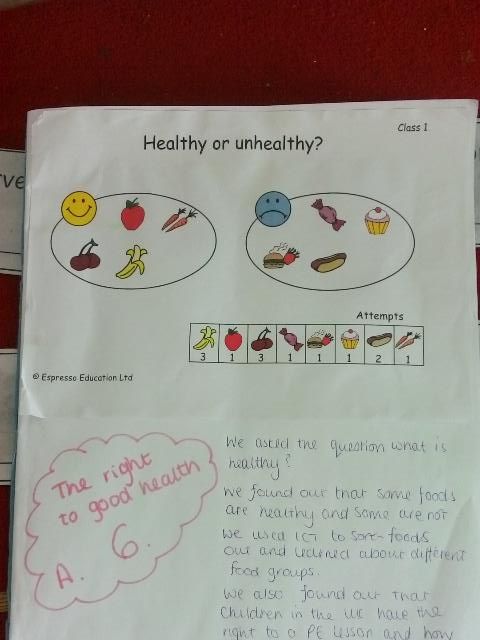 Class 1
Healthy or unhealthy?
rve
Attempts
3 1 3 1 1 1 2 1
© Espresso Education Ltd
The right
to good health
A. 6.
We asked the question what is
healthy?
We found out that some foods
are healthy and some are not
We used ICT to sort foods
out and learned about different
food groups.
We also found out that
Children in the UK have the
right to a PE lesson and how